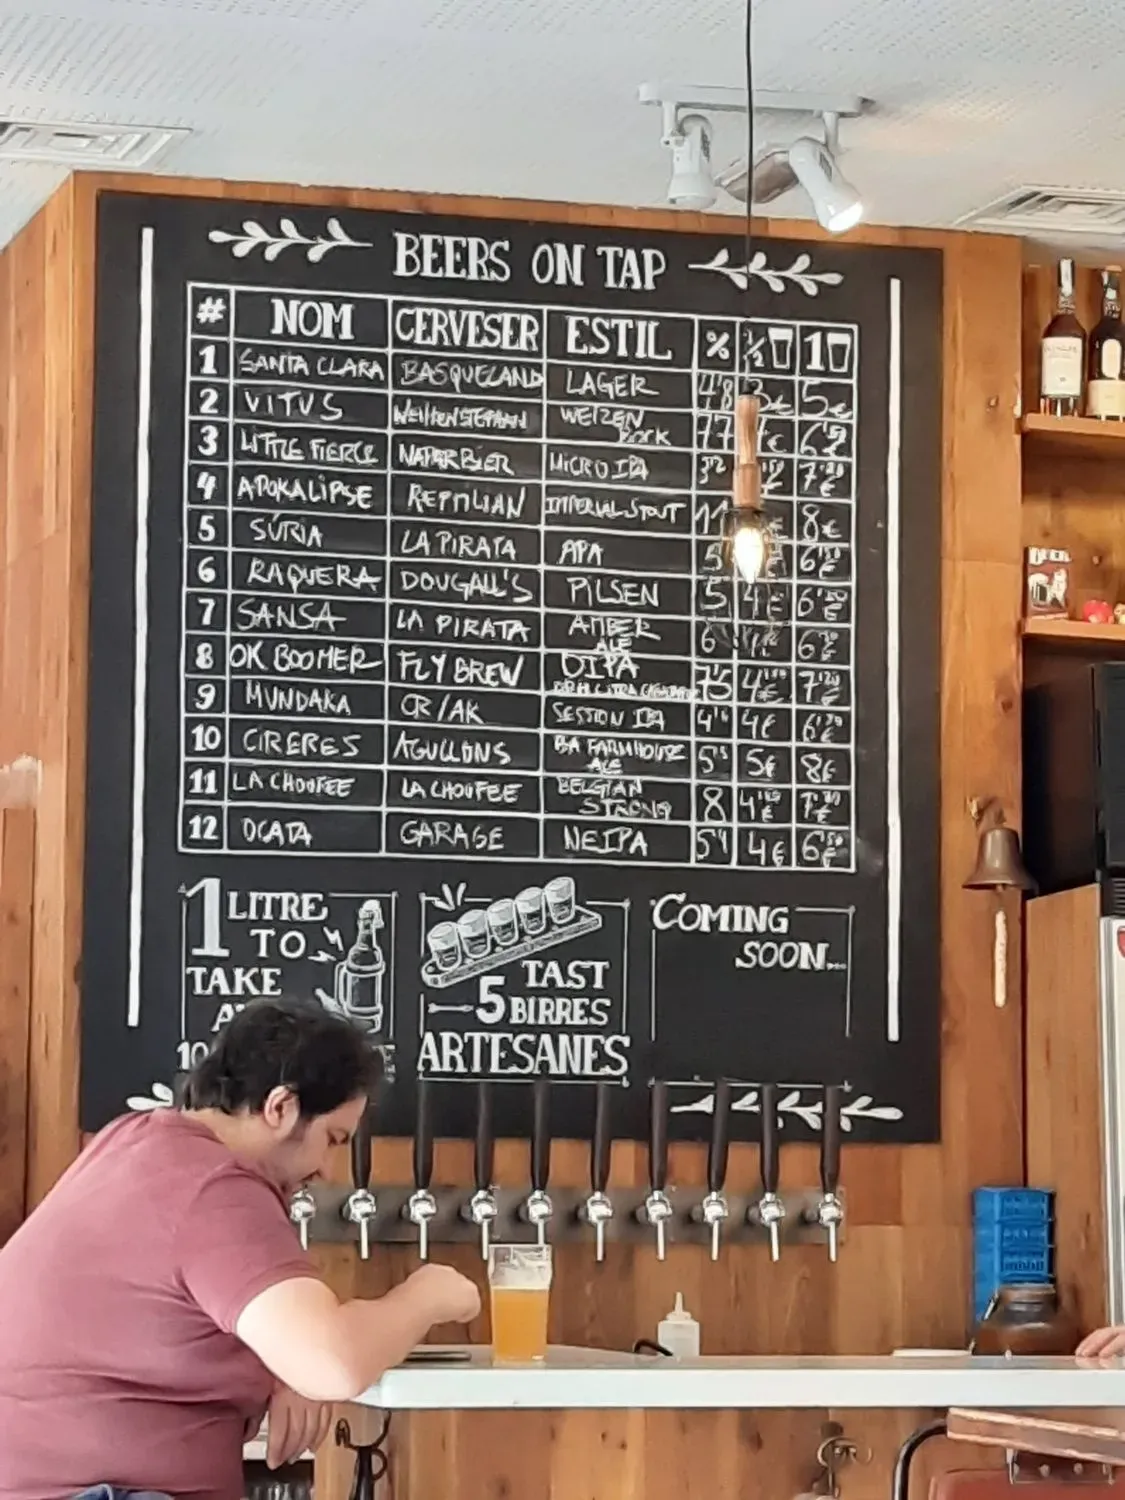 BEERS ON TAP
# NOM CERVESER ESTIL % ½ 1
1 SANTA CLARA BASQUELAND LAGER 4'8 3€ 5€
2 VITUS WEIHENSTEPHAN WEIZEN BOCK 7'7 €
3 LITTLE FIERCE NAPARBIER MICRO IPA
4 APOKALIPSE REPTILIAN IMPERIAL STOUT 11 8€
5 SÚRIA LA PIRATA APA 5
6 RAQUERA DOUGALL'S PILSEN 5 4€
7 SANSA LA PIRATA AMBER ALE 6
8 OK BOOMER FLY BREW DIPA 7'5
9 MUNDAKA CR/AK SESSION IPA 4€
10 CIRERES AGULLONS BA FARMHOUSE ALE 5€ 8€
11 LA CHOUFFE LA CHOUFFE BELGIAN STRONG 8
12 OCATA GARAGE NEIPA 4€ 6'50€
1 LITRE
TO
TAKE
10
TAST
5 BIRRES
ARTESANES
COMING
SOON...
BEER